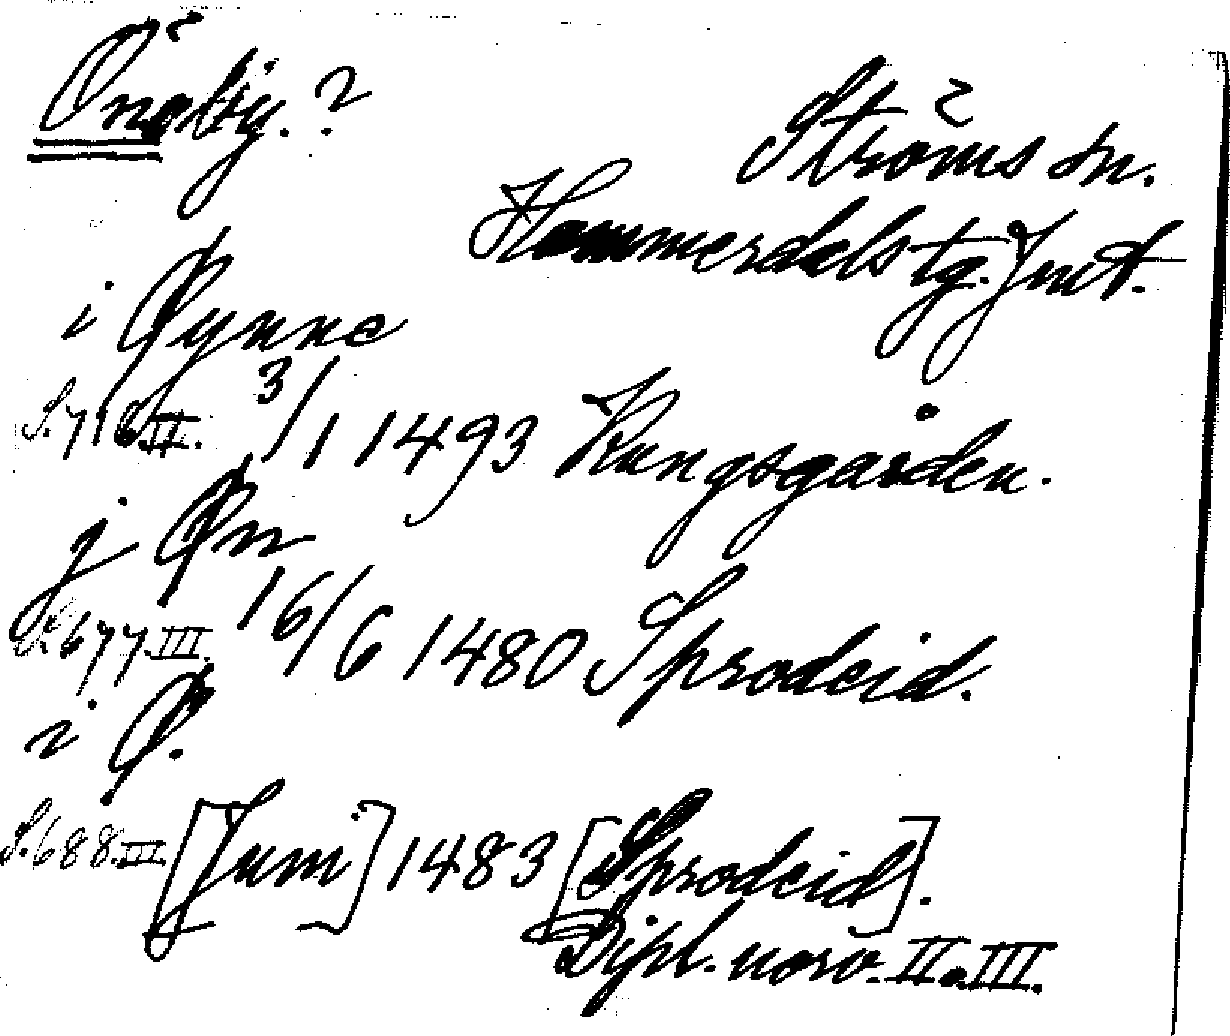 Önsby.?
Ströms sn.
Hammerdals tg. Jmt.
i Øynne
S. 718 II. 3/1 1493 Kungsgården.
j Øn
S. 677. III. 16/6 1480 Sprodeid.
i Ø.
S. 688. III [Juni] 1483 [Sprodeid].
Dipl. norv. II o. III.